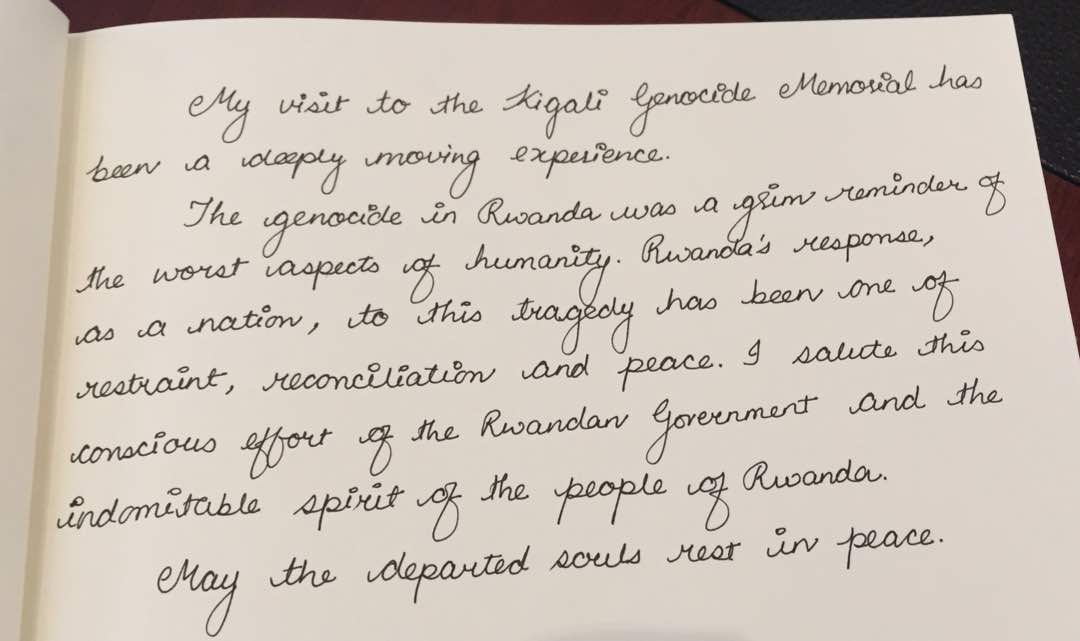 My visit to the Kigali Genocide Memorial has
been a deeply moving experience.
The genocide in Rwanda was a grim reminder of
the worst aspects of humanity. Rwanda's response,
as a nation, to this tragedy has been one of
restraint, reconciliation and peace. I salute this
conscious effort of the Rwandan Government and the
indomitable spirit of the people of Rwanda.
May the departed souls rest in peace.